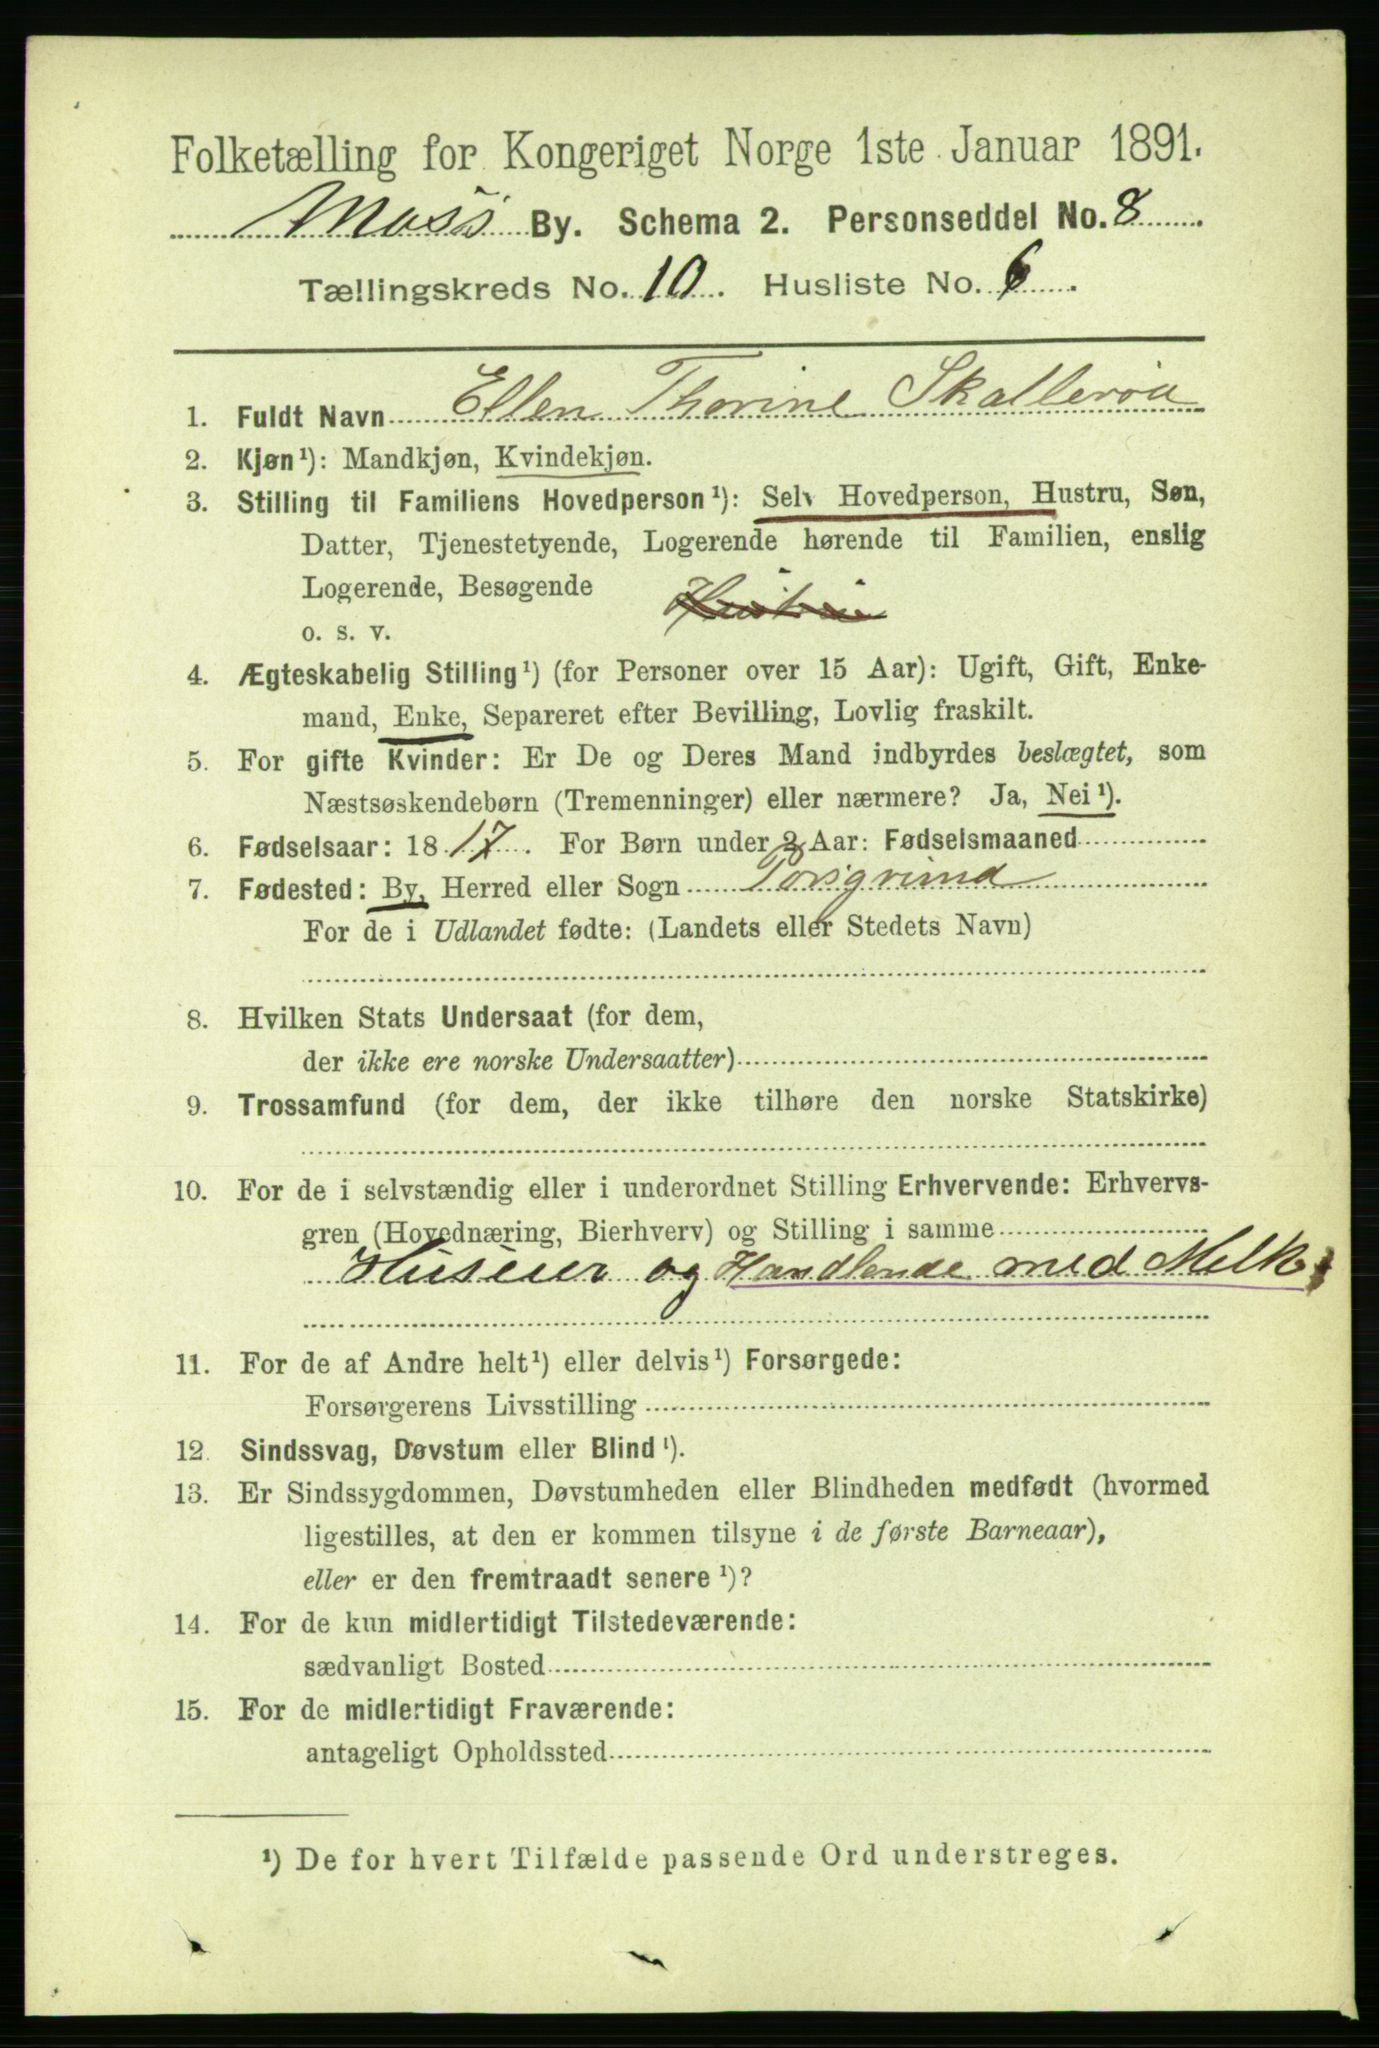 Folketælling for Kongeriget Norge 1ste Januar 1891.
Moss By. Schema 2. Personseddel No. 8
Tællingskreds No. 10. Husliste No. 6.
1. Fuldt Navn Ellen Thorine Skallerøu
2. Kjøn¹): Mandkjøn, Kvindekjøn.
3. Stilling til Familiens Hovedperson¹): Selv Hovedperson, Hustru, Søn,
Datter, Tjenestetyende, Logerende hørende til Familien, enslig
Logerende, Besøgende
o. s. v.
4. Ægteskabelig Stilling¹) (for Personer over 15 Aar): Ugift, Gift, Enke-
mand, Enke, Separeret efter Bevilling, Lovlig fraskilt.
5. For gifte Kvinder: Er De og Deres Mand indbyrdes beslægtet, som
Næstsøskendebørn (Tremenninger) eller nærmere? Ja, Nei¹).
6. Fødselsaar: 1817. For Børn under 2 Aar: Fødselsmaaned
7. Fødested: By, Herred eller Sogn Porsgrund
For de i Udlandet fødte: (Landets eller Stedets Navn)
8. Hvilken Stats Undersaat (for dem,
der ikke ere norske Undersaatter)
9. Trossamfund (for dem, der ikke tilhøre den norske Statskirke)
10. For de i selvstændig eller i underordnet Stilling Erhvervende: Erhvervs-
gren (Hovednæring, Bierhverv) og Stilling i samme
Huseier og Handlende med Melk
11. For de af Andre helt¹) eller delvis¹) Forsørgede:
Forsørgerens Livsstilling
12. Sindssvag, Døvstum eller Blind¹).
13. Er Sindssygdommen, Døvstumheden eller Blindheden medfødt (hvormed
ligestilles, at den er kommen tilsyne i de første Barneaar),
eller er den fremtraadt senere¹)?
14. For de kun midlertidigt Tilstedeværende:
sædvanligt Bosted
15. For de midlertidigt Fraværende:
antageligt Opholdssted
¹) De for hvert Tilfælde passende Ord understreges.